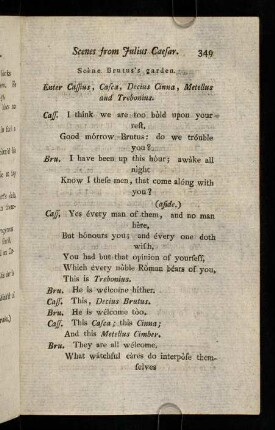 Scenes from Julius Caesar. 349
Scene Brutus's garden.
Enter Caſſius, Caſca, Decius Cinna, Metellus
and Trebonius.
Caſſ. I think we are too bòld upon your
reſt,
Good mórrow Brutus: do we tróuble
you?
Bru. I have been up this hóur; awáke all
night
Know I theſe men, that come alóng with
you?
(aſide.)
Caſſ. Yes évery man of them, and no man
hère,
But hónours you; and évery one doth
wiſh,
You had but that opinion of yourſelf,
Which évery nòble Ròman béars of you,
This is Trebonius.
Bru. He is wélcome hither.
Caſſ. This, Decius Brutus.
Bru. He is wélcome tòo.
Caſſ. This Caſca; this Cinna;
And this Metellus Cimber.
Bru. They are all wélcome,
What wátchful càres do interpòſe them-
ſelves